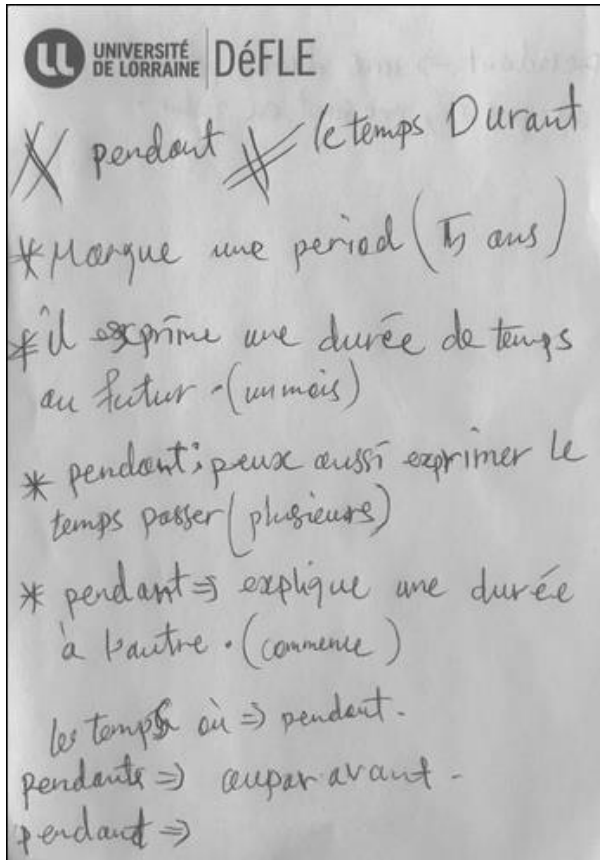 UNIVERSITÉ
DE LORRAINE
DéFLE
pendant le temps Durant
* Marque une period ( ans)
* il exprime une durée de temps
au futur . (un mois)
* pendant : peux aussi exprimer le
temps passer ( plusieurs)
* pendant => explique une durée
à l'autre . (commence )
les temps où => pendant .
pendante => auparavant .
pendant =>